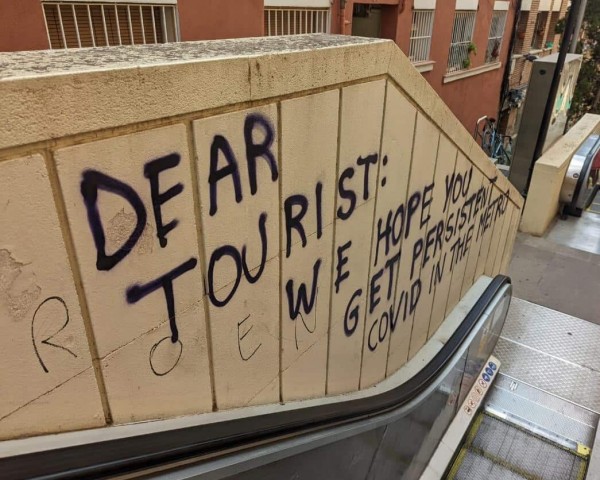 DEAR
TOURIST:
WE HOPE YOU
GET PERSISTENT
COVID IN THE METRO
R O E N